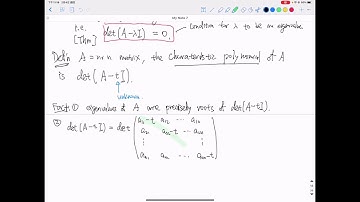 My Note 7
i.e.
[Thm] det(A-λI) = 0. Condition for λ to be an eigenvalue.
Def'n A = n×n matrix, the characteristic polynomial of A
is det(A-tI).
unknown
Fact: ① eigenvalues of A are precisely roots of det(A-tI).
② det(A-tI) = det ( a₁₁-t a₁₂ ... a₁ₙ
a₂₁ a₂₂-t ... a₂ₙ
⋮ ⋮
aₙ₁ aₙ₂ ... aₙₙ-t )